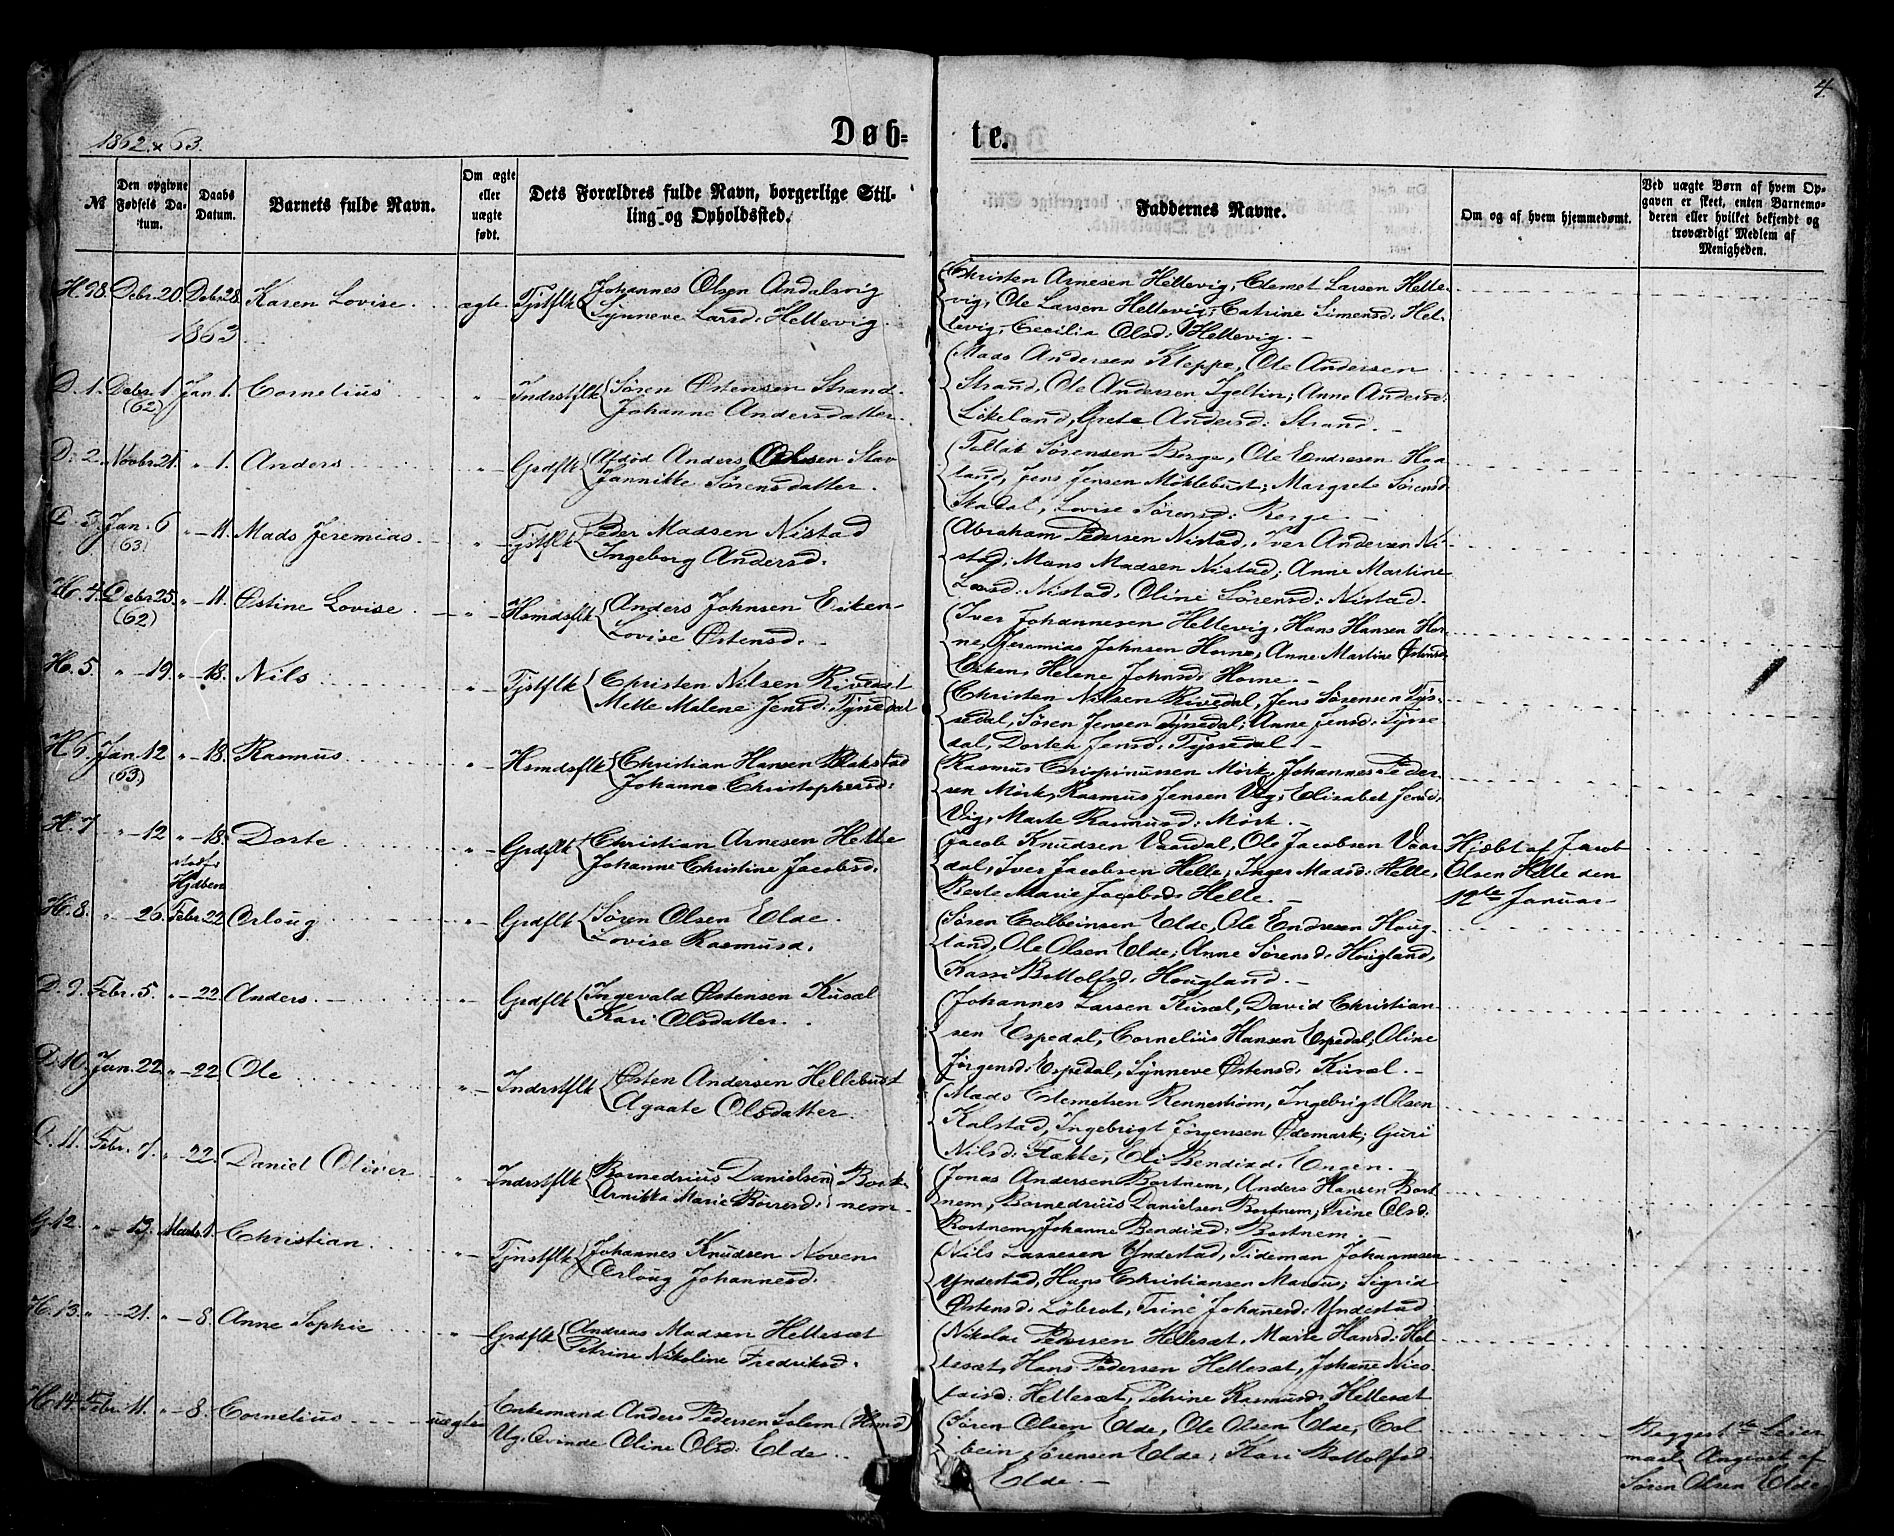 4.
1862 & 63.
Døb=
te.
№
Den opgivne Fødsels Datum.
Daabs Datum.
Barnets fulde Navn.
Om ægte eller uægte født.
Dets Forældres fulde Navn, borgerlige Stilling og Opholdssted.
Faddernes Navne.
Om og af hvem hjemmedømt.
Ved uægte Børn af hvem Opgaven er skeet, enten Barnemoderen eller hvilket bekjendt og troværdigt Medlem af Menigheden.
H. 98. Debr. 20. Debr. 28. Karen Lovise ægte Tjstflk Johannes Olsen Andalsvig
Synneve Larsd: Hellevig.
Christen Arnesen Hellevig, Clemet Larsen Helle-
vig, Ole Larsen Hellevig, Catrine Simensd: Hel-
levig, Cecilia Olsd: Hellevig. —
1863.
D. 1. Debr. 1. (62) Jan 1. Cornelius " Indrstflk Søren Østensen Strand
Johanne Andersdatter
Mads Andersen Kleppe, Ole Andersen
Strand, Ole Andersen Igeltin, Anne Andersd:
Likeland, Grete Andersd: Strand. —
D. 2. Novbr. 21. " 1. Anders " Grdflk Afdød Anders Olsen Stav
Jannikke Sørensdatter.
Tollak Sørensen Berge, Ole Endresen Haa-
land, Jens Jensen Møklebust, Margrete Sørensd:
Skadal, Lovise Sørensd: Berge —
D. 3. Jan. 6 (63) " 11. Mads Jeremias " Tjstflk Peder Madsen Nistad
Ingeborg Andersd.
Abraham Pedersen Nistad, Iver Andersen Ni-
stad, Mons Madsen Nistad, Anne Martine
Larsd: Nistad, Oline Sørensd: Nistad.
H. 4. Debr. 25. (62) " 11. Østine Lovise " Hsmdsflk Anders Johnsen Eiken
Lovise Østensd.
Iver Johannesen Hellevig, Hans Hansen Hor-
ne, Jeremias Johnsen Horne, Anne Martine Østensd:
Eiken, Helene Johnsd: Horne. —
H. 5 " 19. " 18. Nils " Tjstflk Christen Nilsen Rivedal
Mette Malene Jensd: Tyssedal
Christen Nilsen Rivedal, Jens Sørensen Tys-
sedal, Søren Jensen Tyssedal, Anne Jensd: Tysse-
dal, Dorten Jensd: Tyssedal. —
H. 6. Jan. 12 (63) " 18. Rasmus " Hsmdsflk Christian Hansen Blakstad
Johanne Christophersd:
Rasmus Crispinussen Mørk, Johannes Peder-
sen Mørk, Rasmus Jensen Vig, Elisabet Jensd:
Vig, Marte Rasmusd: Mørk. —
H. 7 " 12 " 18. Dorte " Grdflk Christian Arnesen Helle
Johanne Christine Jacobsd.
Jacob Knudsen Vaardal, Ole Jacobsen Vaar-
dal, Iver Jacobsen Helle, Inger Madsd: Helle,
Berte Marie Jacobsd: Helle. —
Hjdben
Hjæbt af Jacob
Olsen Helle den
12te Januar
H. 8. " 26. Febr. 22. Orloug " Grdflk Søren Olsen Elde.
Lovise Rasmusd.
Søren Colbeinsen Elde, Ole Endresen Houg-
land, Ole Olsen Elde, Anne Sørensd: Hougland,
Kari Bottolfsd: Hougland. —
D. 9. Febr. 5. " 22. Anders. " Grdflk Ingevald Østensen Kusæl
Kari Olsdatter.
Johannes Larsen Kusæl, David Christian-
sen Espedal, Cornelius Hansen Espedal, Oline
Jørgensd: Espedal, Synneve Østensd: Kusæl. —
D. 10. Jan. 22. " 22. Ole " Indrstflk Østen Andersen Hellebust
Agaate Olsdatter.
Mads Clemetsen Rennestrøm, Ingebrigt Olsen
Kalstad, Ingebrigt Jørgensen Ødemark, Guri
Nilsd: Flække, Eli Bendixd: Engen. —
D. 11. Febr. 7. " 22. Daniel Oliver " Indrstflk Bornedrius Danielsen Bort-
Arnikka Marie Børresd: nem
Jonas Andersen Bortnem, Anders Hansen Bort-
nem, Bornedrius Danielsen Bortnem, Trine Olsd:
Bortnem, Johanne Bendixd: Bortnem. —
G. 12. " 13. Marts 1. Christian " Tjnstflk Johannes Knudsen Noven
Orloug Johannesd.
Nils Lassesen Yndestad, Tideman Johannesen
Yndestad, Hans Christiansen Mardus, Sigrid
Østensd: Løbrot, Trine Johanesd: Yndestad.
H. 13. " 21. " 8. Anne Sophie " Grdflk Andreas Madsen Hellesæt
Petrine Nikoline Fredriksd.
Nikolai Pedersen Hellesæt, Marte Hansd: Hel-
lesæt, Hans Pedersen Hellesæt, Johane Nico-
laisd: Hellesæt, Petrine Rasmusd: Hellesæt
H. 14. Febr. 11. " 8. Cornelius uægte Enkemand Anders Pedersen Solem (Hsmd)
Ug. Qvinde Oline Olsd: Elde
Søren Olsen Elde, Ole Olsen Elde, Col-
bein Sørensen Elde, Kari Bottolfsd.
Elde. —
Begges 1ste Leier-
maal. Angivet af
Søren Olsen Elde.